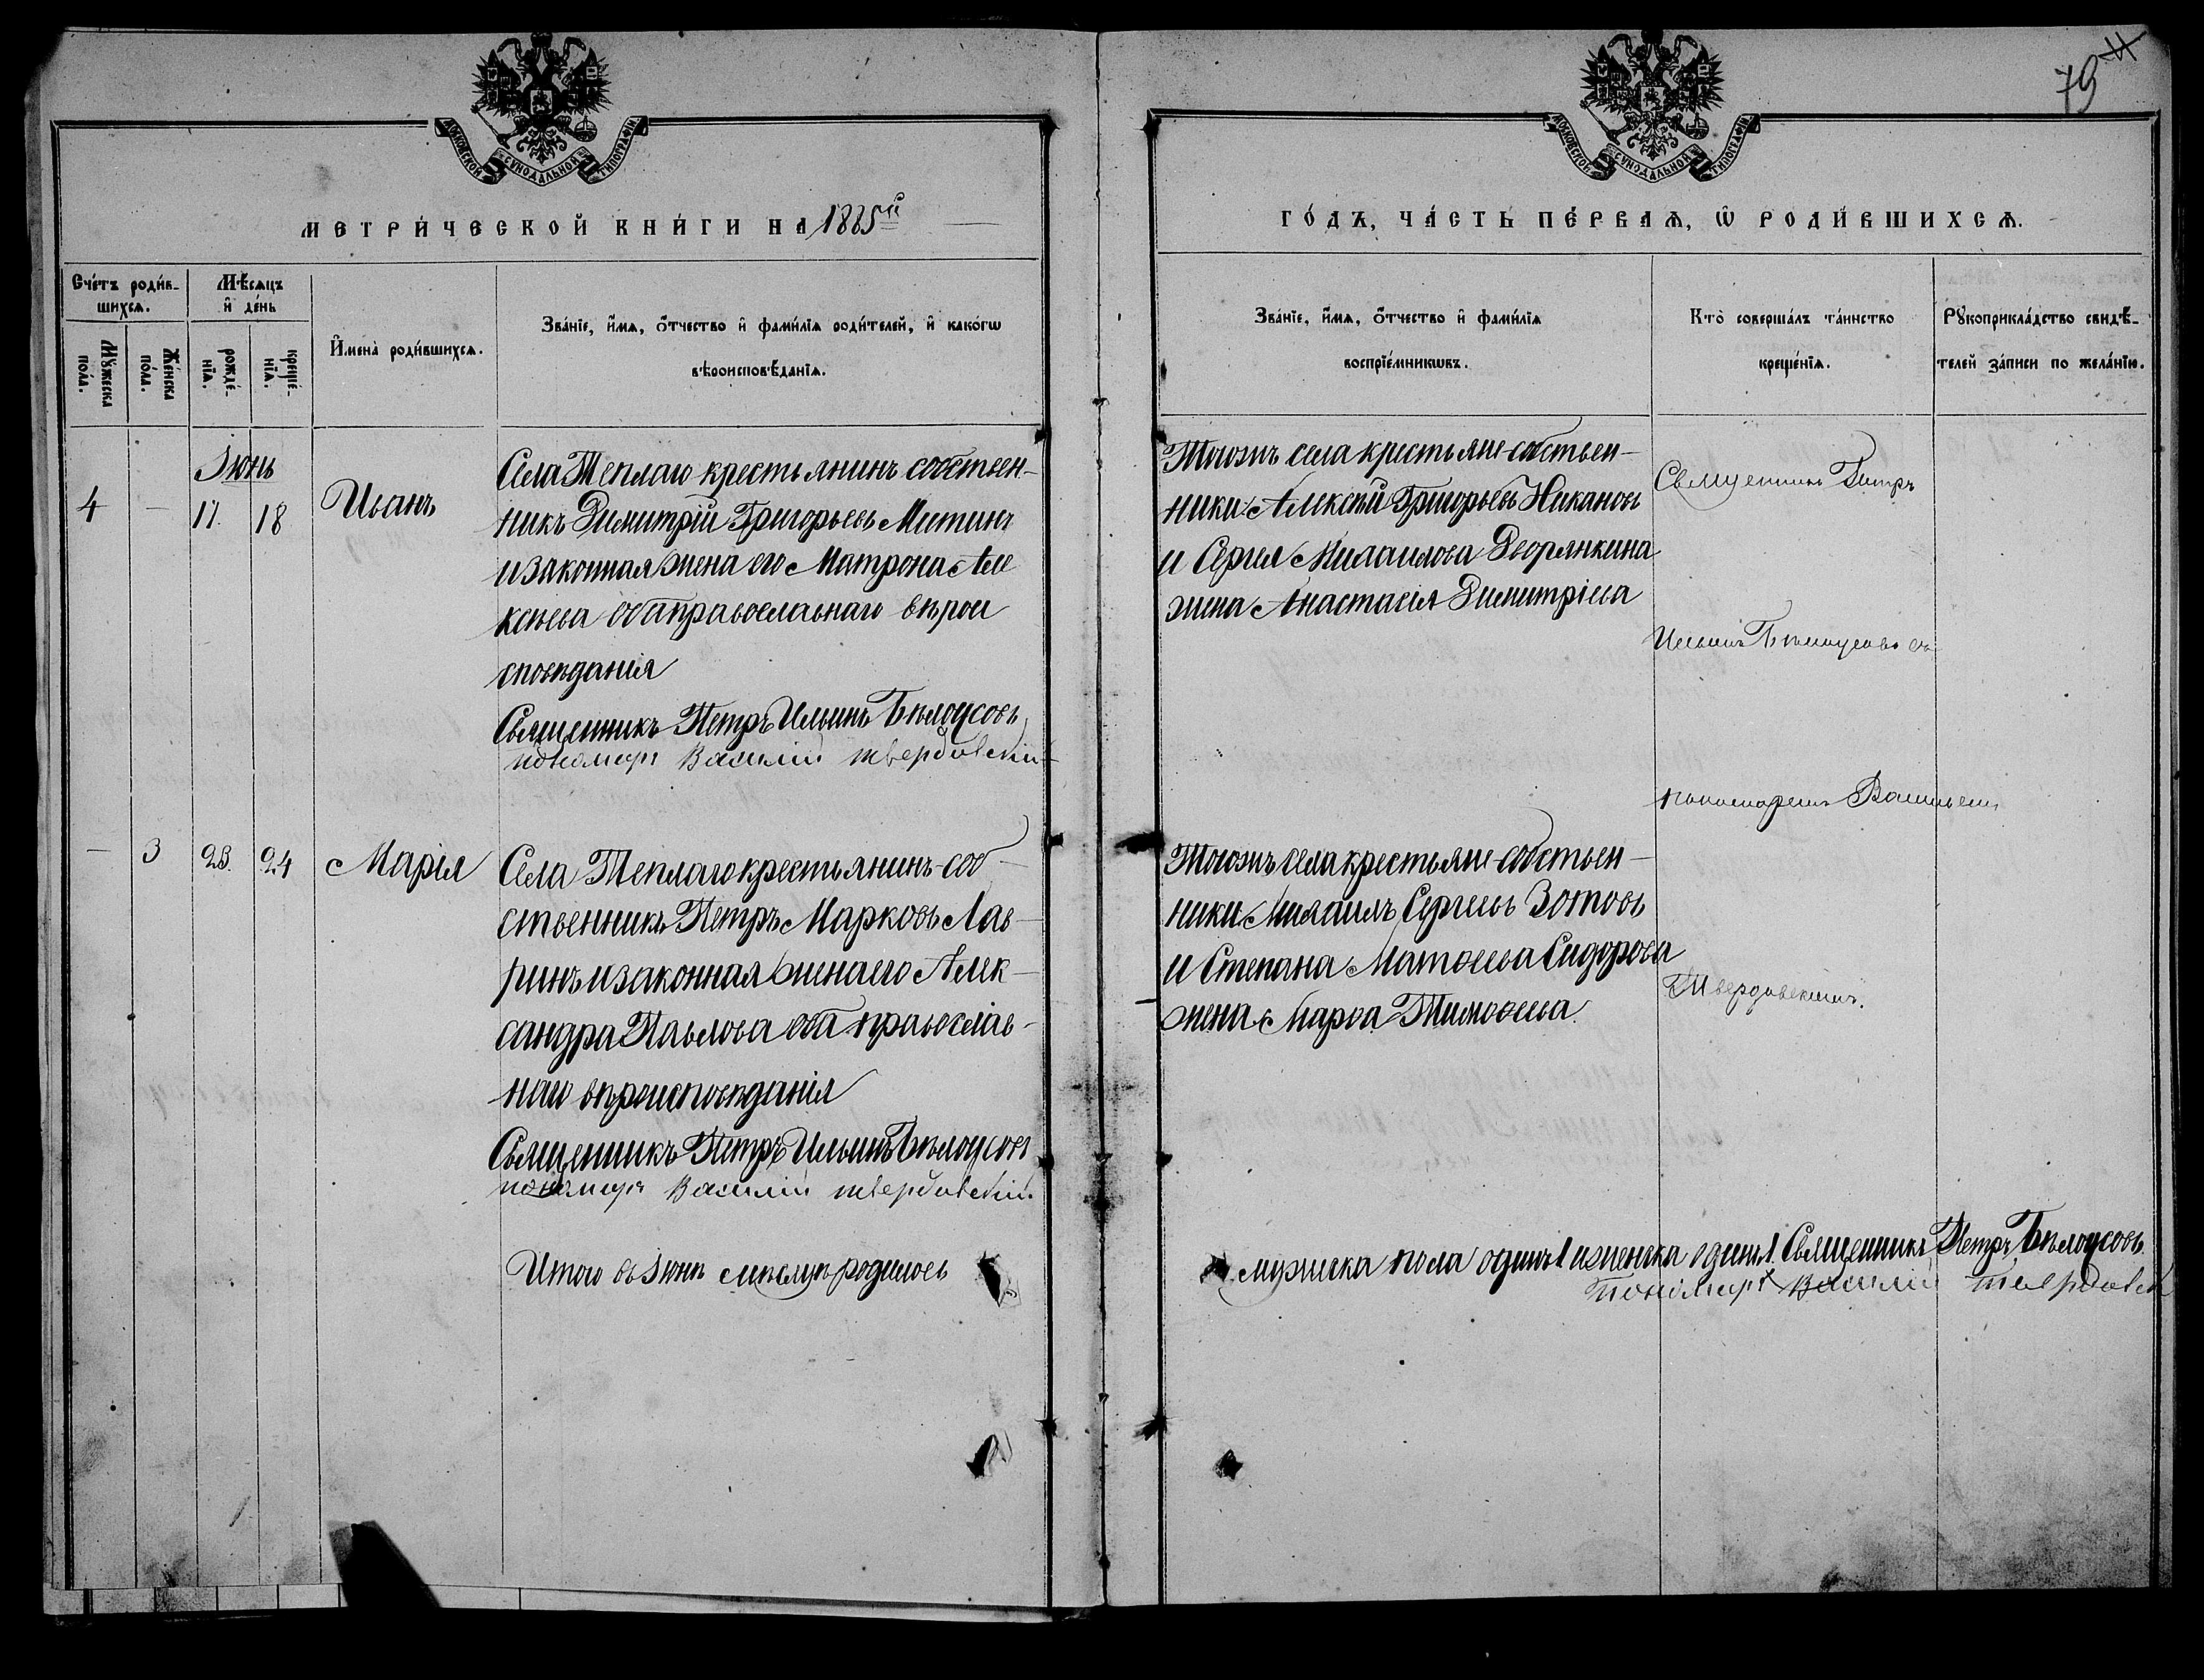 79
МОСКОВСКОЙ СѴНОДАЛЬНОЙ ТИПОГРАФІИ
МОСКОВСКОЙ СѴНОДАЛЬНОЙ ТИПОГРАФІИ
МЕТРИ́ЧЕСКОЙ КНИ́ГИ НА 1885й
ГО́ДЪ, ЧА́СТЬ ПЕ́РВАѦ, Ѽ РОДИ́ВШИХСѦ.
Сче́тъ роди́в-
шихсѧ.
Мꙋ́жеска
по́ла.
Же́нска
по́ла.
Мѣ́сѧцъ
и҆ де́нь
рожде́-
нїѧ.
креще́-
нїѧ.
И҆мена̀ роди́вшихсѧ.
Зва́нїе, и҆́мѧ, ѻ҆́тчество и҆ фами́лїѧ роди́телей, и҆ како́гѡ
вѣроисповѣ́данїѧ.
Зва́нїе, и҆́мѧ, ѻ҆́тчество и҆ фами́лїѧ
воспрїе́мникѡвъ.
Кто̀ соверша́лъ та́инство
креще́нїѧ.
Рꙋкоприкла́дство свидѣ́-
телей за́писи по жела́нїю.
Іюнь
4 — 17. 18 Иванъ
Села Теплаго крестьянинъ собствен-
никъ Димитрій Григорьевъ Митинъ
и законная жена его Матрона Але
ксѣева оба православнаго вѣрои
сповѣданія
Священникъ Петръ Ильинъ Бѣлоусовъ
пономарь Василій Твердовскій
Тогожъ села крестьяне-собствен-
ники Алексѣй Григорьевъ Никановъ
и Сергея Михаилова Дворянкина
жена Анастасія Димитріева
Священникъ Петръ
Ильинъ Бѣлоусовъ съ
пономаремъ Васильемъ
Твердовскимъ.
— 3 23. 24 Марія
Села Теплаго крестьянинъ-соб-
ственникъ Петръ Марковъ Лав-
ринъ и законная жена его Алек-
сандра Павлова оба православ-
наго вѣроисповѣданія
Священникъ Петръ Ильинъ Бѣлоусовъ
пономарь Василій Твердовскій.
Тогожъ села крестьяне-собствен-
ники Михаилъ Сергеевъ Зотовъ
и Степана Матѳеева Сидорова
жена Марѳа Тимоѳеева.
Итого въ Іюнѣ мѣсяцѣ родилось
мужеска пола одинъ 1 и женска одинъ 1. Священникъ Петръ Бѣлоусовъ.
Пономарь Василій Твердовск